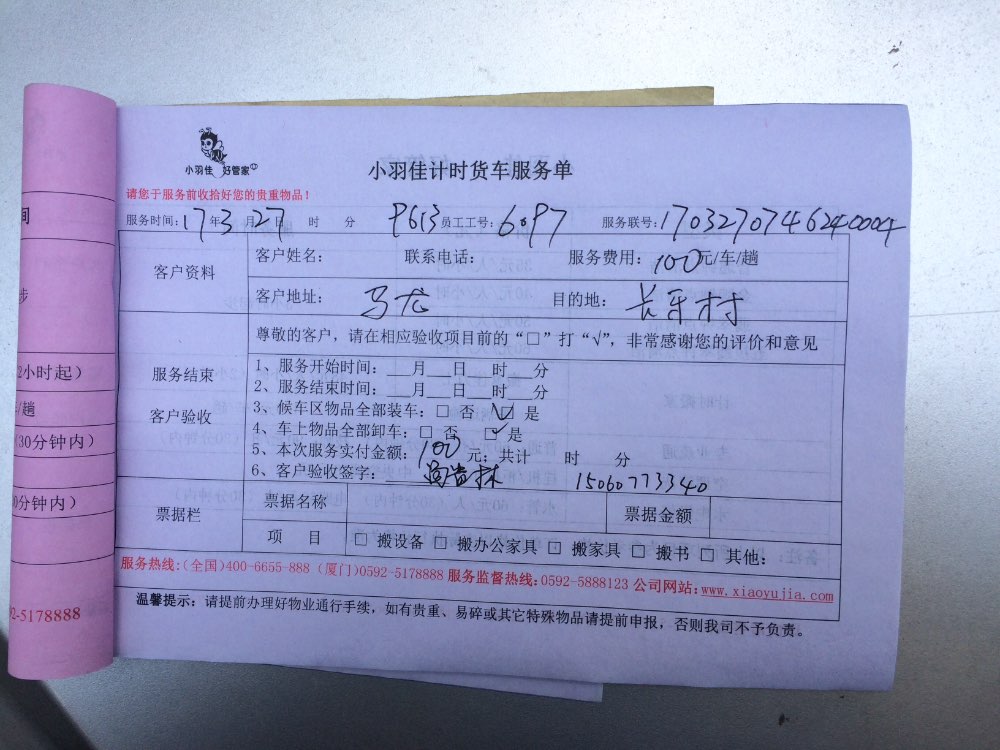 小羽佳 好管家
小羽佳计时货车服务单
请您于服务前收拾好您的贵重物品！
服务时间：17年3月27日 时 分 9613 员工工号：6097 服务联号：1703270746240004
客户资料
客户姓名： 联系电话： 服务费用：100元/车/趟
客户地址：马龙 目的地：长平村
服务结束
客户验收
尊敬的客户，请在相应验收项目前的“□”打“√”，非常感谢您的评价和意见
1、服务开始时间：___月___日___时___分
2、服务结束时间：___月___日___时___分
3、候车区物品全部装车：□ 否 ☑ 是
4、车上物品全部卸车：□ 否 ☑ 是
5、本次服务实付金额：100 元；共计 时 分
6、客户验收签字： 15060773340
票据栏
票据名称 票据金额
项 目 □ 搬设备 □ 搬办公家具 □ 搬家具 □ 搬书 □ 其他：
服务热线：(全国)400-6655-888 (厦门)0592-5178888 服务监督热线：0592-5888123 公司网站：www.xiaoyujia.com
温馨提示：请提前办理好物业通行手续，如有贵重、易碎或其它特殊物品请提前申报，否则我司不予负责。
间
步
2小时起）
/趟
(30分钟内）
0分钟内）
92-5178888